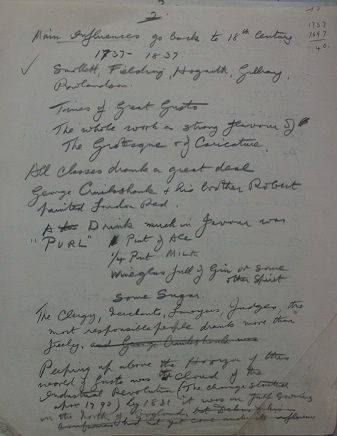 2.
Main Influences go back to 18th Century
1737 - 1837
Smollett, Fielding, Hogarth, Gillray,
Rowlandson.
Times of Great Gusto
The whole work a strong flavour of
The Grotesque & of Caricature.
All classes drank a great deal
George Cruikshank & his brother Robert
painted London Red.
A Drink much in favour was
"PURL" Pint of Ale
1/4 Pint Milk
Wineglass full of Gin or some
other Spirit
Some Sugar.
The Clergy, Merchants, Lawyers, Judges, the
most responsible people drank more than
freely, and George Cruikshank was
Peeping up above the Horizon of this
world of Gusto was the Cloud of the
Industrial Revolution (The change started
1790) by 1831 it was in full swing
in the North of England, but Dickens & his
had not yet come under its influence